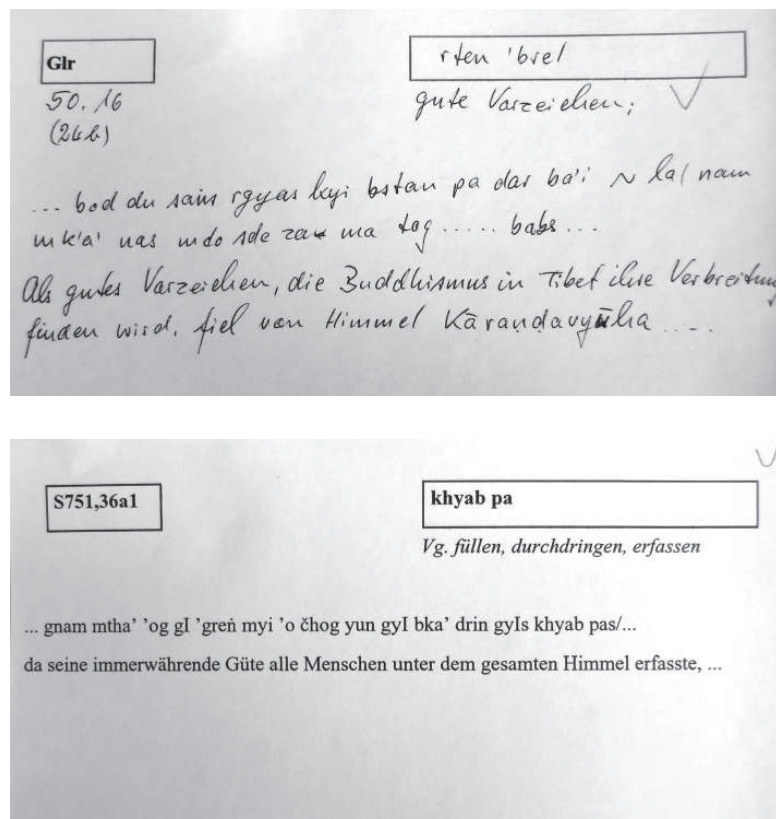 Glr
rten 'brel
50.16
(24b)
gute Vorzeichen;
... bod du sans rgyas kyi bstan pa dar ba'i ~ la/ nam
mk'a' nas mdo sde za ma tog ..... babs ...
Als gutes Vorzeichen, die Buddhismus in Tibet ihre Verbreitung
finden wird, fiel von Himmel Kāraṇḍavyūha ....
S751,36a1
khyab pa
Vg. füllen, durchdringen, erfassen
... gnam mtha' 'og gI 'greṅ myi 'o čhog yun gyI bka' drin gyIs khyab pas/...
da seine immerwährende Güte alle Menschen unter dem gesamten Himmel erfasste, ...